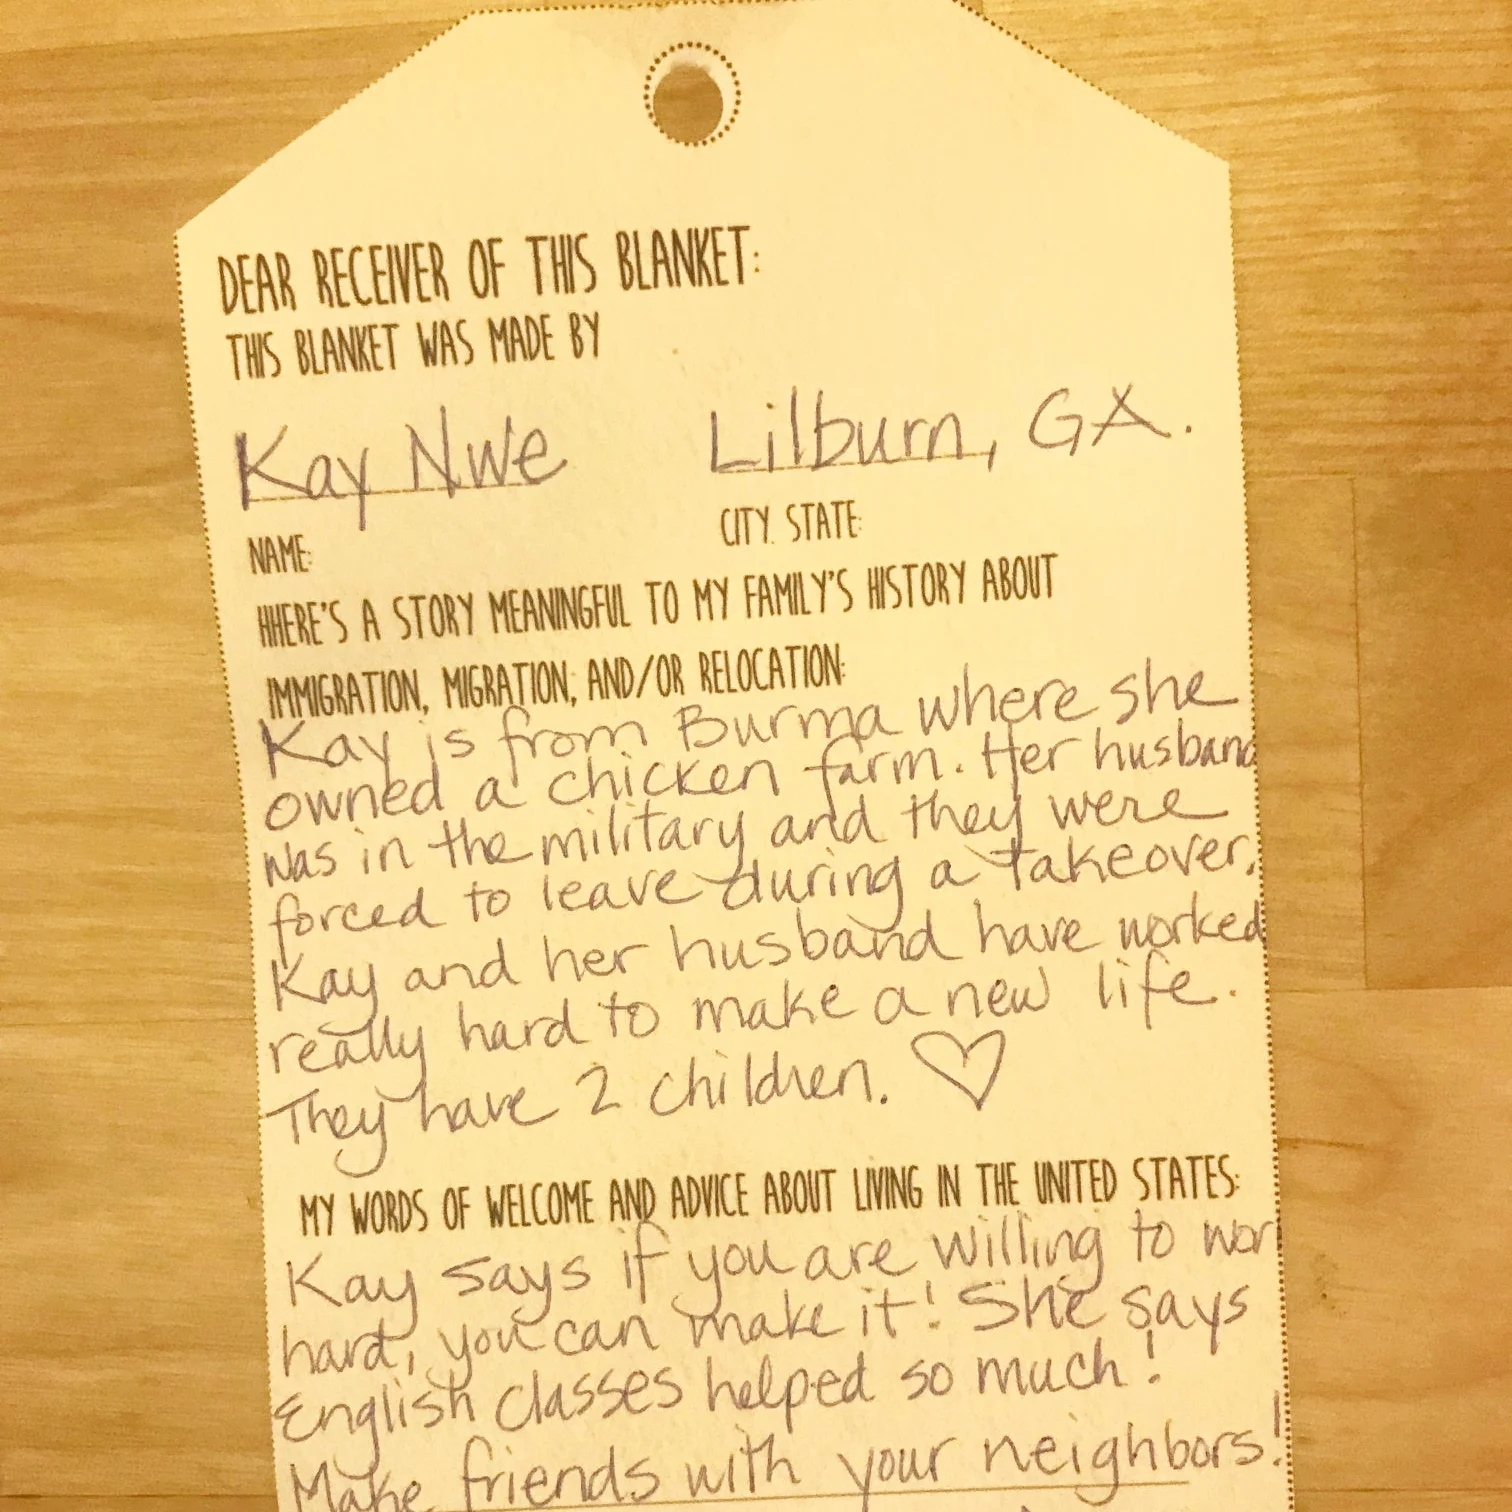 DEAR RECEIVER OF THIS BLANKET:
THIS BLANKET WAS MADE BY
Kay Nwe Lilburn, GA.
NAME: CITY, STATE:
HHERE'S A STORY MEANINGFUL TO MY FAMILY'S HISTORY ABOUT
IMMIGRATION, MIGRATION, AND/OR RELOCATION:
Kay is from Burma where she
owned a chicken farm. Her husband
was in the military and they were
forced to leave during a takeover.
Kay and her husband have worked
really hard to make a new life.
They have 2 children. ♡
MY WORDS OF WELCOME AND ADVICE ABOUT LIVING IN THE UNITED STATES:
Kay says if you are willing to wor
hard, you can make it! She says
English classes helped so much!
Make friends with your neighbors!